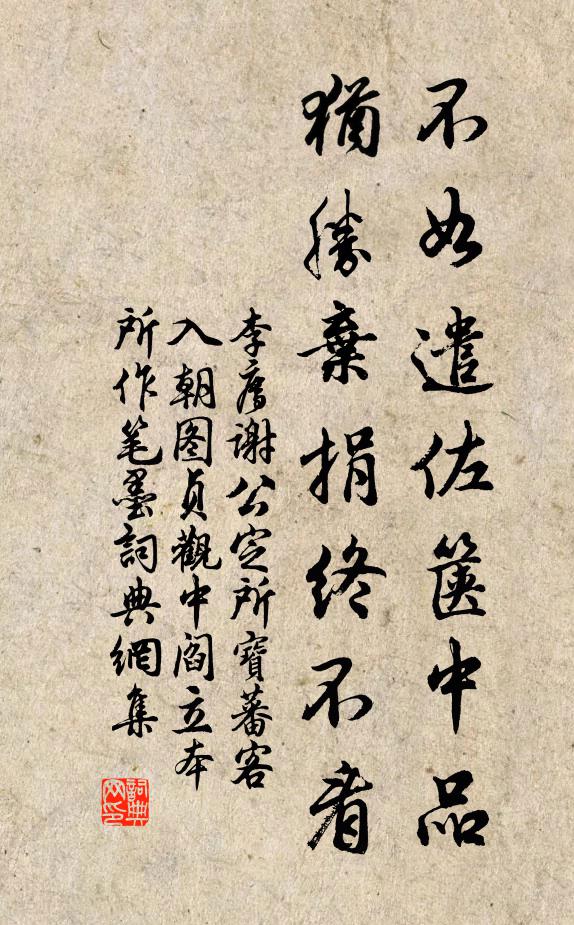 不如遣佐篋中品
猶勝棄捐終不看
李廌謝公定所寶蕃客
入朝图貞觀中閻立本
所作笔墨詞典網集
詞典网印